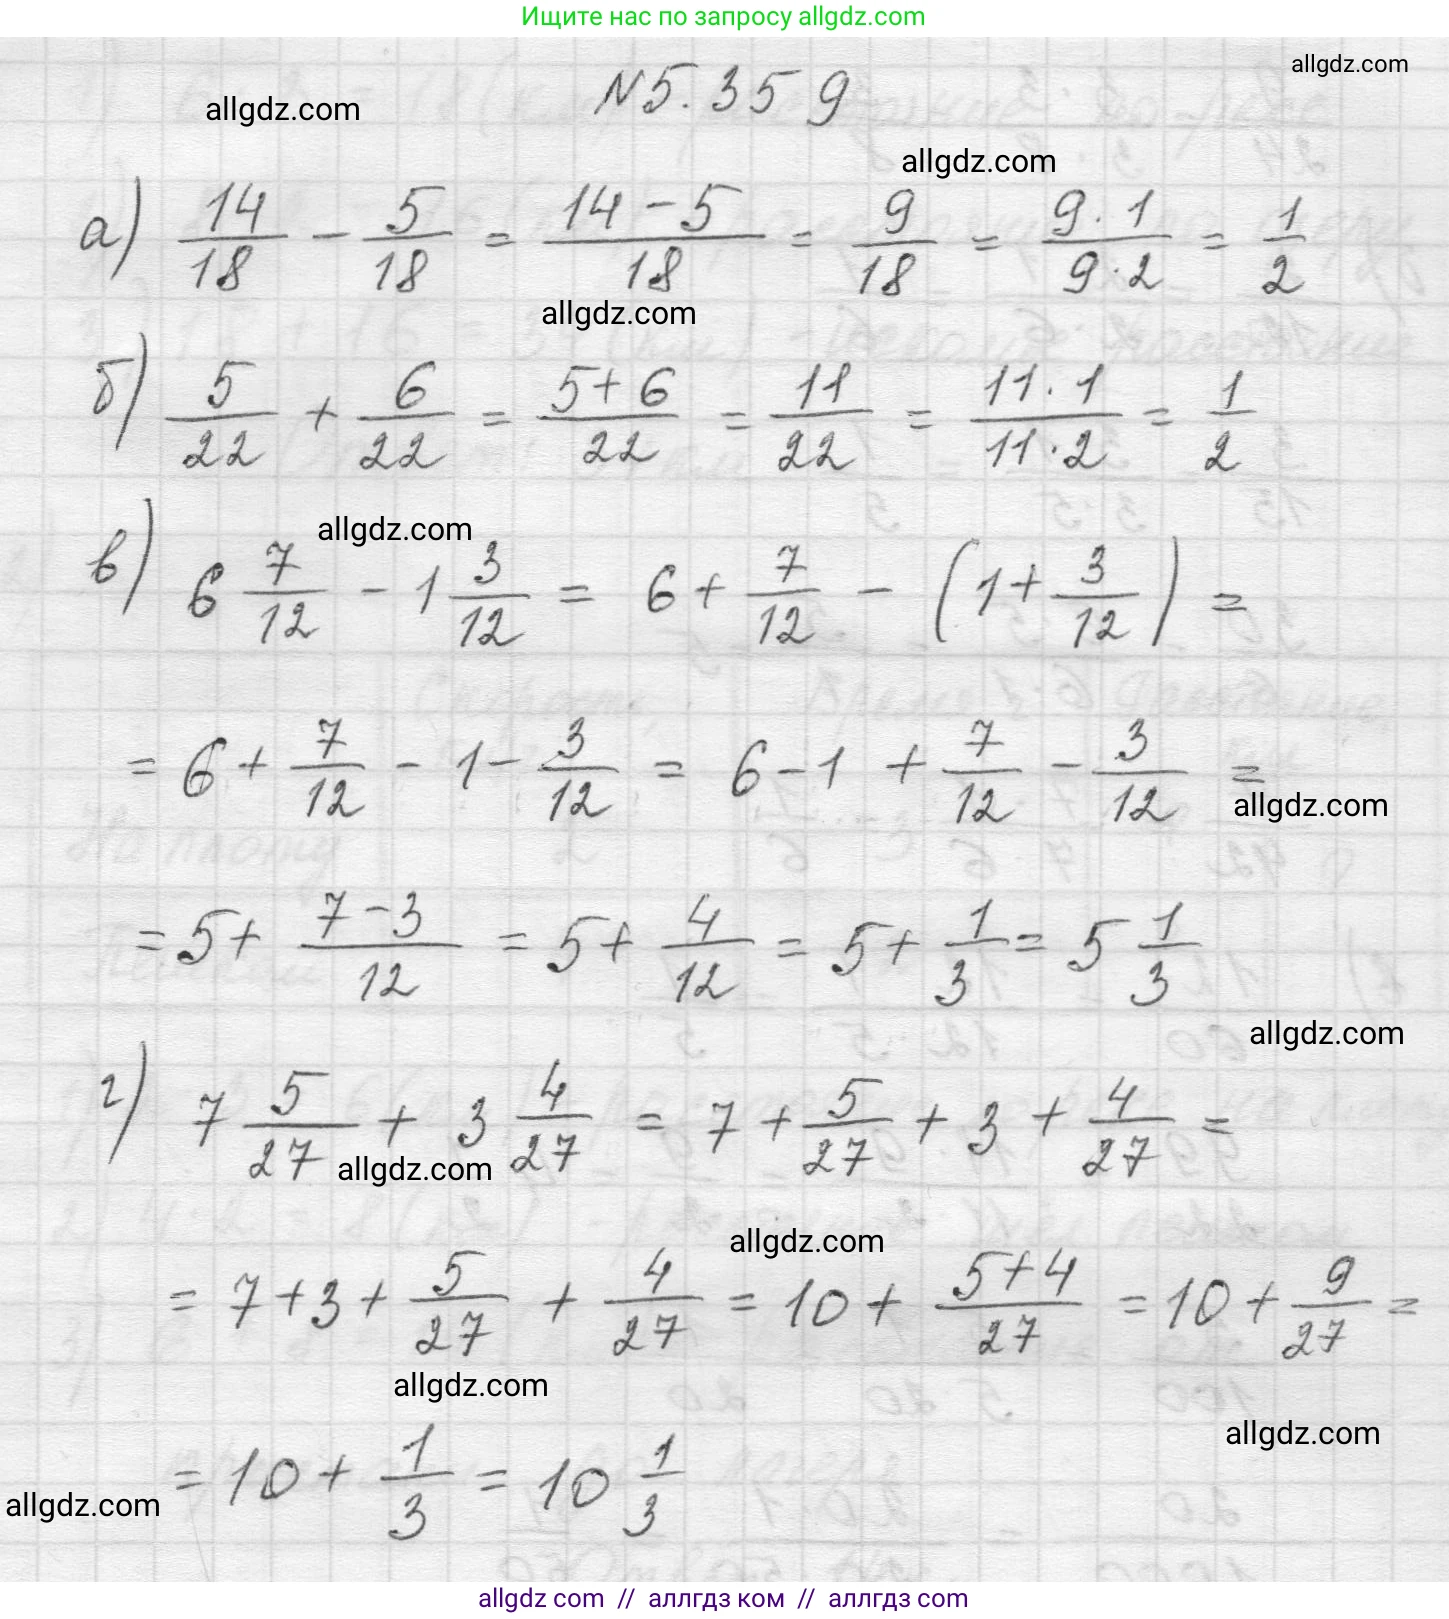 Ищите нас по запросу allgdz.com
allgdz.com
allgdz.com
№5.359
allgdz.com
а) 14/18 - 5/18 = (14-5)/18 = 9/18 = (9·1)/(9·2) = 1/2
allgdz.com
б) 5/22 + 6/22 = (5+6)/22 = 11/22 = (11·1)/(11·2) = 1/2
allgdz.com
в) 6 7/12 - 1 3/12 = 6 + 7/12 - (1 + 3/12) =
= 6 + 7/12 - 1 - 3/12 = 6 - 1 + 7/12 - 3/12 =
allgdz.com
= 5 + (7-3)/12 = 5 + 4/12 = 5 + 1/3 = 5 1/3
allgdz.com
г) 7 5/27 + 3 4/27 = 7 + 5/27 + 3 + 4/27 =
allgdz.com
allgdz.com
= 7 + 3 + 5/27 + 4/27 = 10 + (5+4)/27 = 10 + 9/27 =
allgdz.com
allgdz.com
= 10 + 1/3 = 10 1/3
allgdz.com
allgdz.com // аллгдз ком // аллгдз com